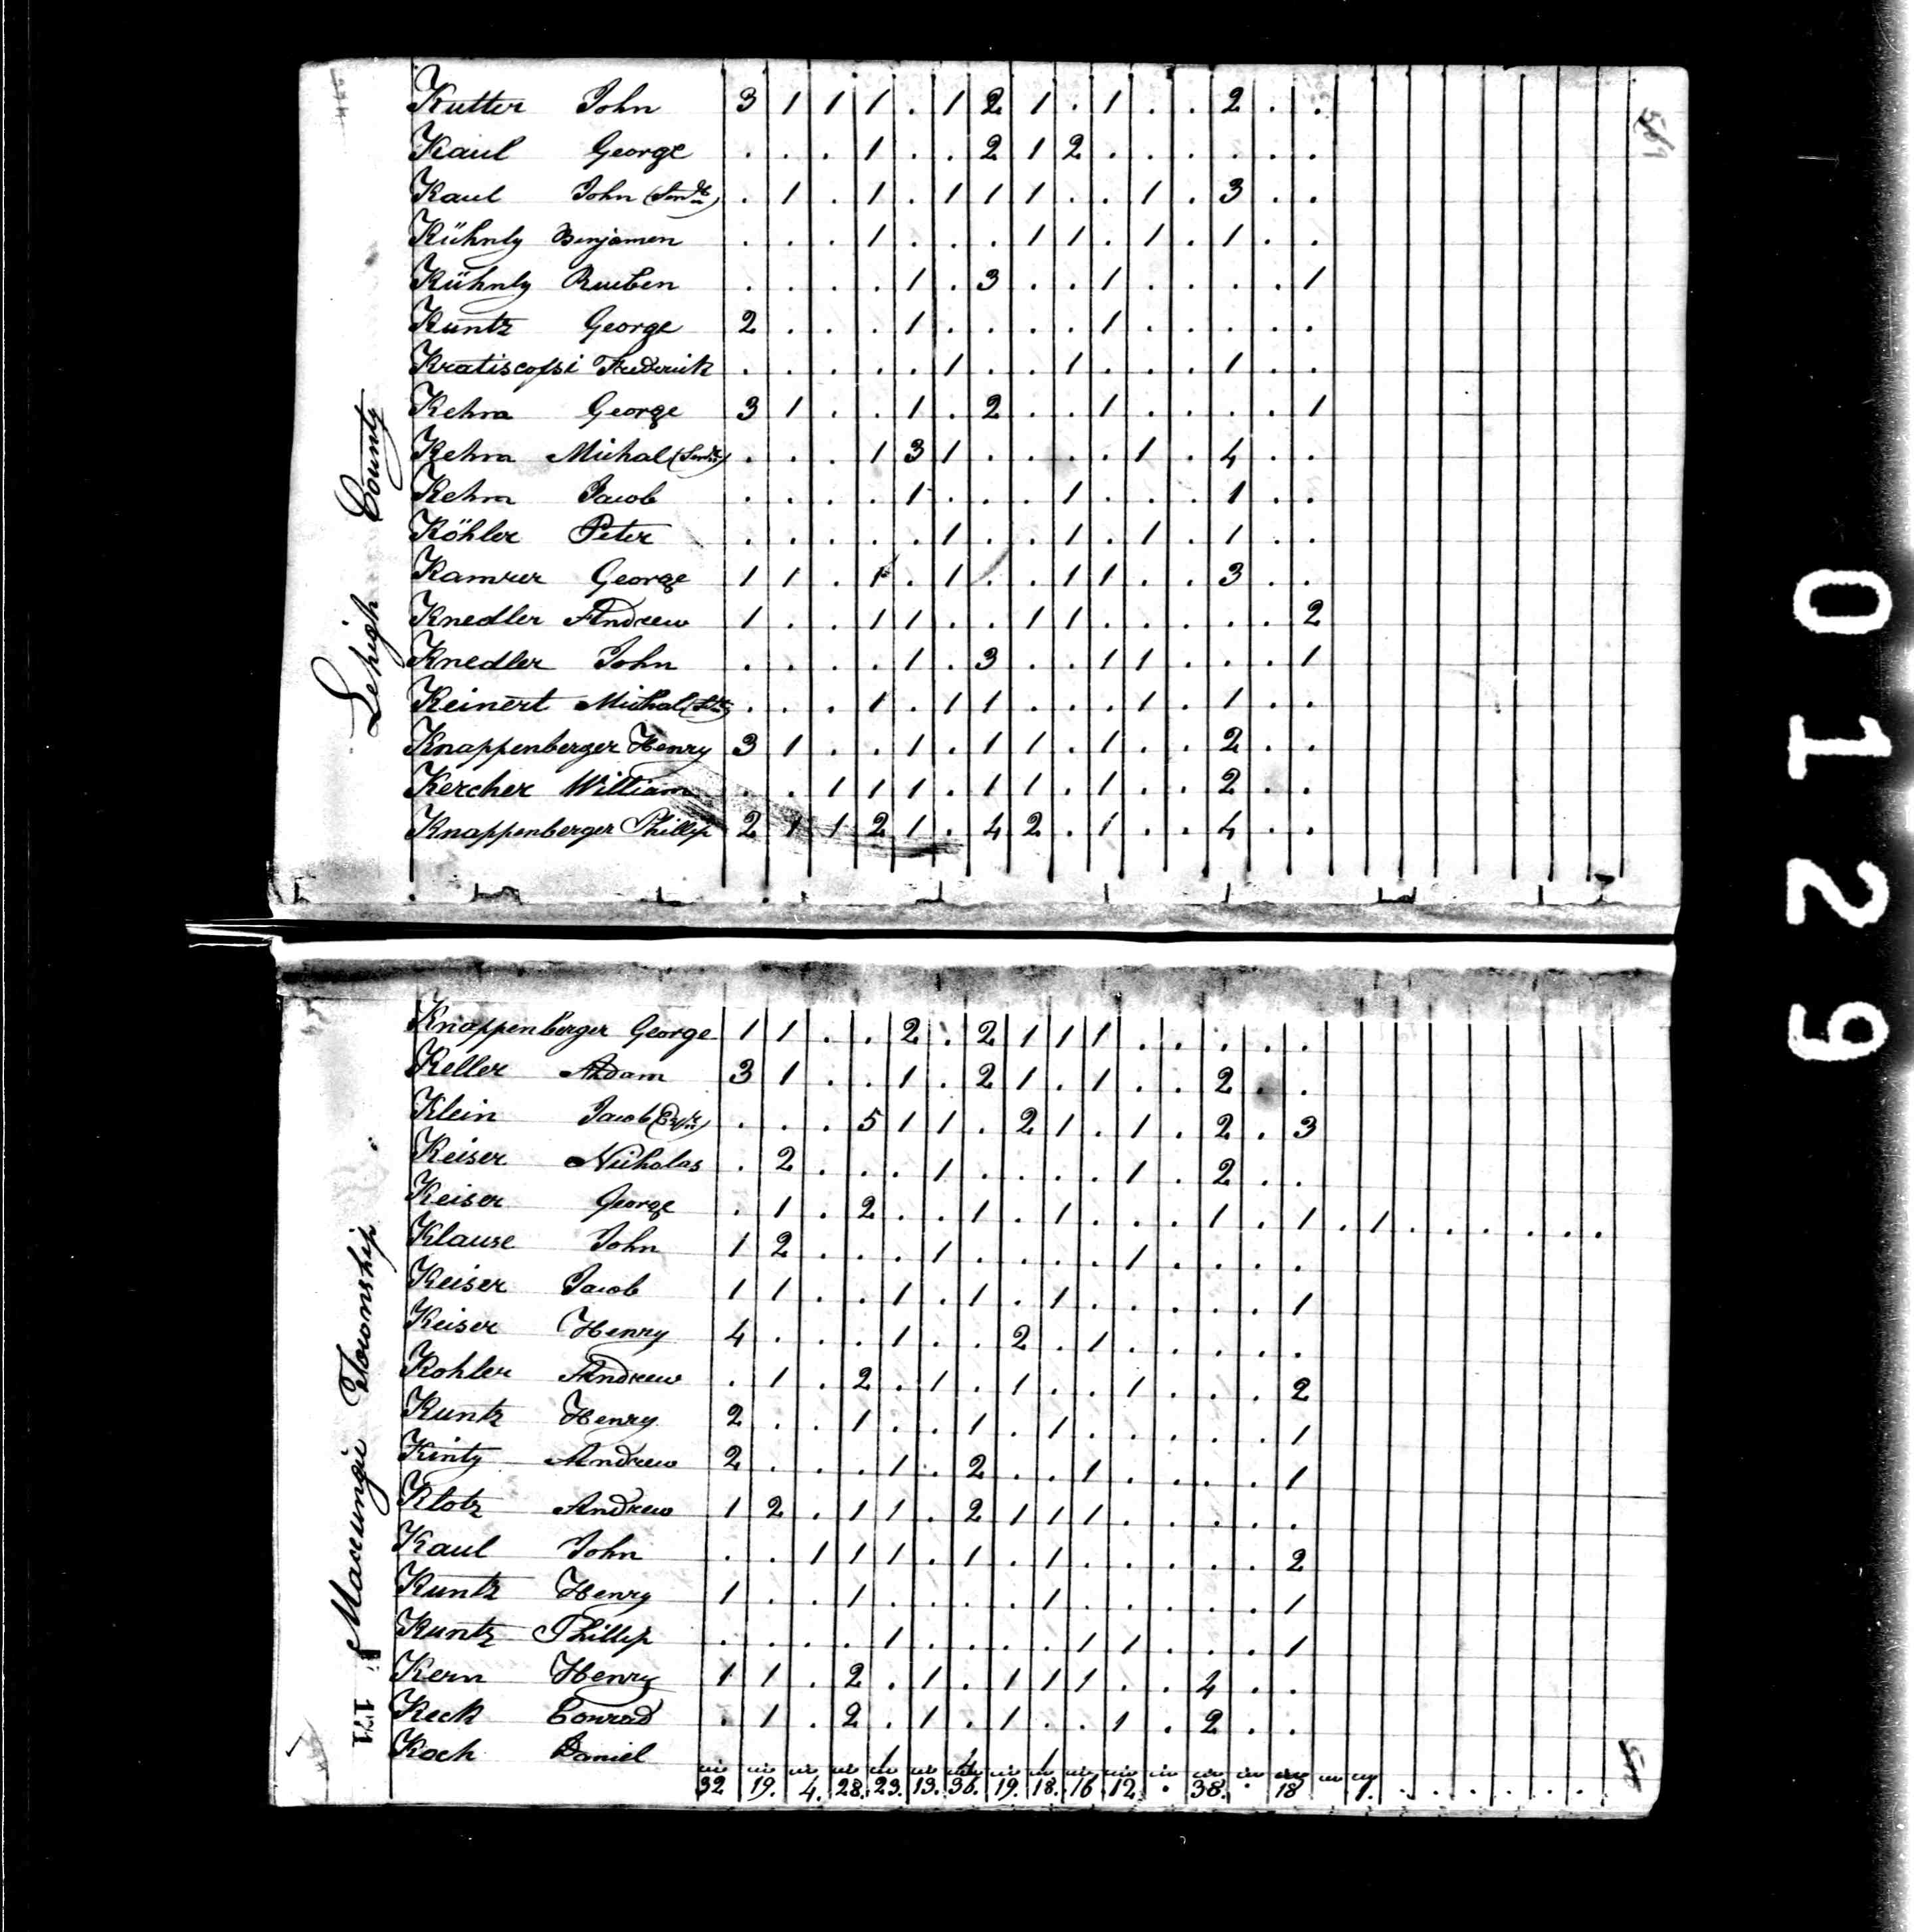 Kutter John 3 1 1 1 . 1 2 1 . 1 . . 2 . .
Kaul George . . . 1 . . 2 1 2 . . . . . .
Kaul John . 1 . 1 . 1 1 1 . . 1 . 3 . .
Kühnly Benjamen . . . 1 . . . 1 1 . 1 . 1 . .
Kühnly Rueben . . . . 1 . 3 . . 1 . . . . 1
Kuntz George 2 . . . 1 . . . . 1 . . . . .
Kratiscofsi Frederick . . . . . 1 . . 1 . . . 1 . .
Kehm George 3 1 . . 1 . 2 . . 1 . . . . 1
Kehm Michal . . . 1 3 1 . . . . 1 . 4 . .
Kehm Jacob . . . . 1 . . . 1 . . . 1 . .
Köhler Peter . . . . . 1 . . 1 . 1 . 1 . .
Kamrer George 1 1 . 1 . 1 . . 1 1 . . 3 . .
Knedler Andrew 1 . . 1 1 . . 1 1 . . . . . 2
Knedler John . . . . 1 . 3 . . 1 1 . . . 1
Keinert Michal . . . 1 . 1 1 . . . 1 . 1 . .
Knappenberger Henry 3 1 . . 1 . 1 1 . 1 . . 2 . .
Kercher William . . 1 1 1 . 1 1 . 1 . . 2 . .
Knappenberger Phillip 2 1 1 2 1 . 4 2 . 1 . . 4 . .
Lehigh County
Knappenberger George 1 1 . . 2 . 2 1 1 1 . . . . .
Keller Adam 3 1 . . 1 . 2 1 . 1 . . 2 . .
Klein Jacob . . . 5 1 1 . 2 1 . 1 . 2 . 3
Keiser Nicholas . 2 . . . 1 . . . . 1 . 2 . .
Keiser George . 1 . 2 . . 1 . 1 . . . 1 . 1 . 1 . . . . . .
Klause John 1 2 . . . 1 . . . . 1 . . . .
Keiser Jacob 1 1 . . 1 . 1 . 1 . . . . . 1
Keiser Henry 4 . . . 1 . . 2 . 1 . . . . .
Kohler Andrew . 1 . 2 . 1 . 1 . . 1 . . . 2
Kuntz Henry 2 . . 1 . . 1 . 1 . . . . . 1
Kinty Andrew 2 . . . 1 . 2 . . 1 . . . . 1
Klotz Andrew 1 2 . 1 1 . 2 1 1 1 . . . . .
Kaul John . . 1 1 1 . 1 . 1 . . . . . 2
Kuntz Henry 1 . . 1 . . . . 1 . . . . . 1
Kuntz Phillip . . . . 1 . . . . 1 1 . . . 1
Kern Henry 1 1 . 2 . 1 . 1 1 1 . . 4 . .
Keck Conrad . 1 . 2 . 1 . 1 . . 1 . 2 . .
Koch Daniel 1 1 1
32 19. 4. 28. 23. 13. 36. 19. 18. 16 12. . 38. . 18 1. . . . . . .
Maccungie Township
171
0129